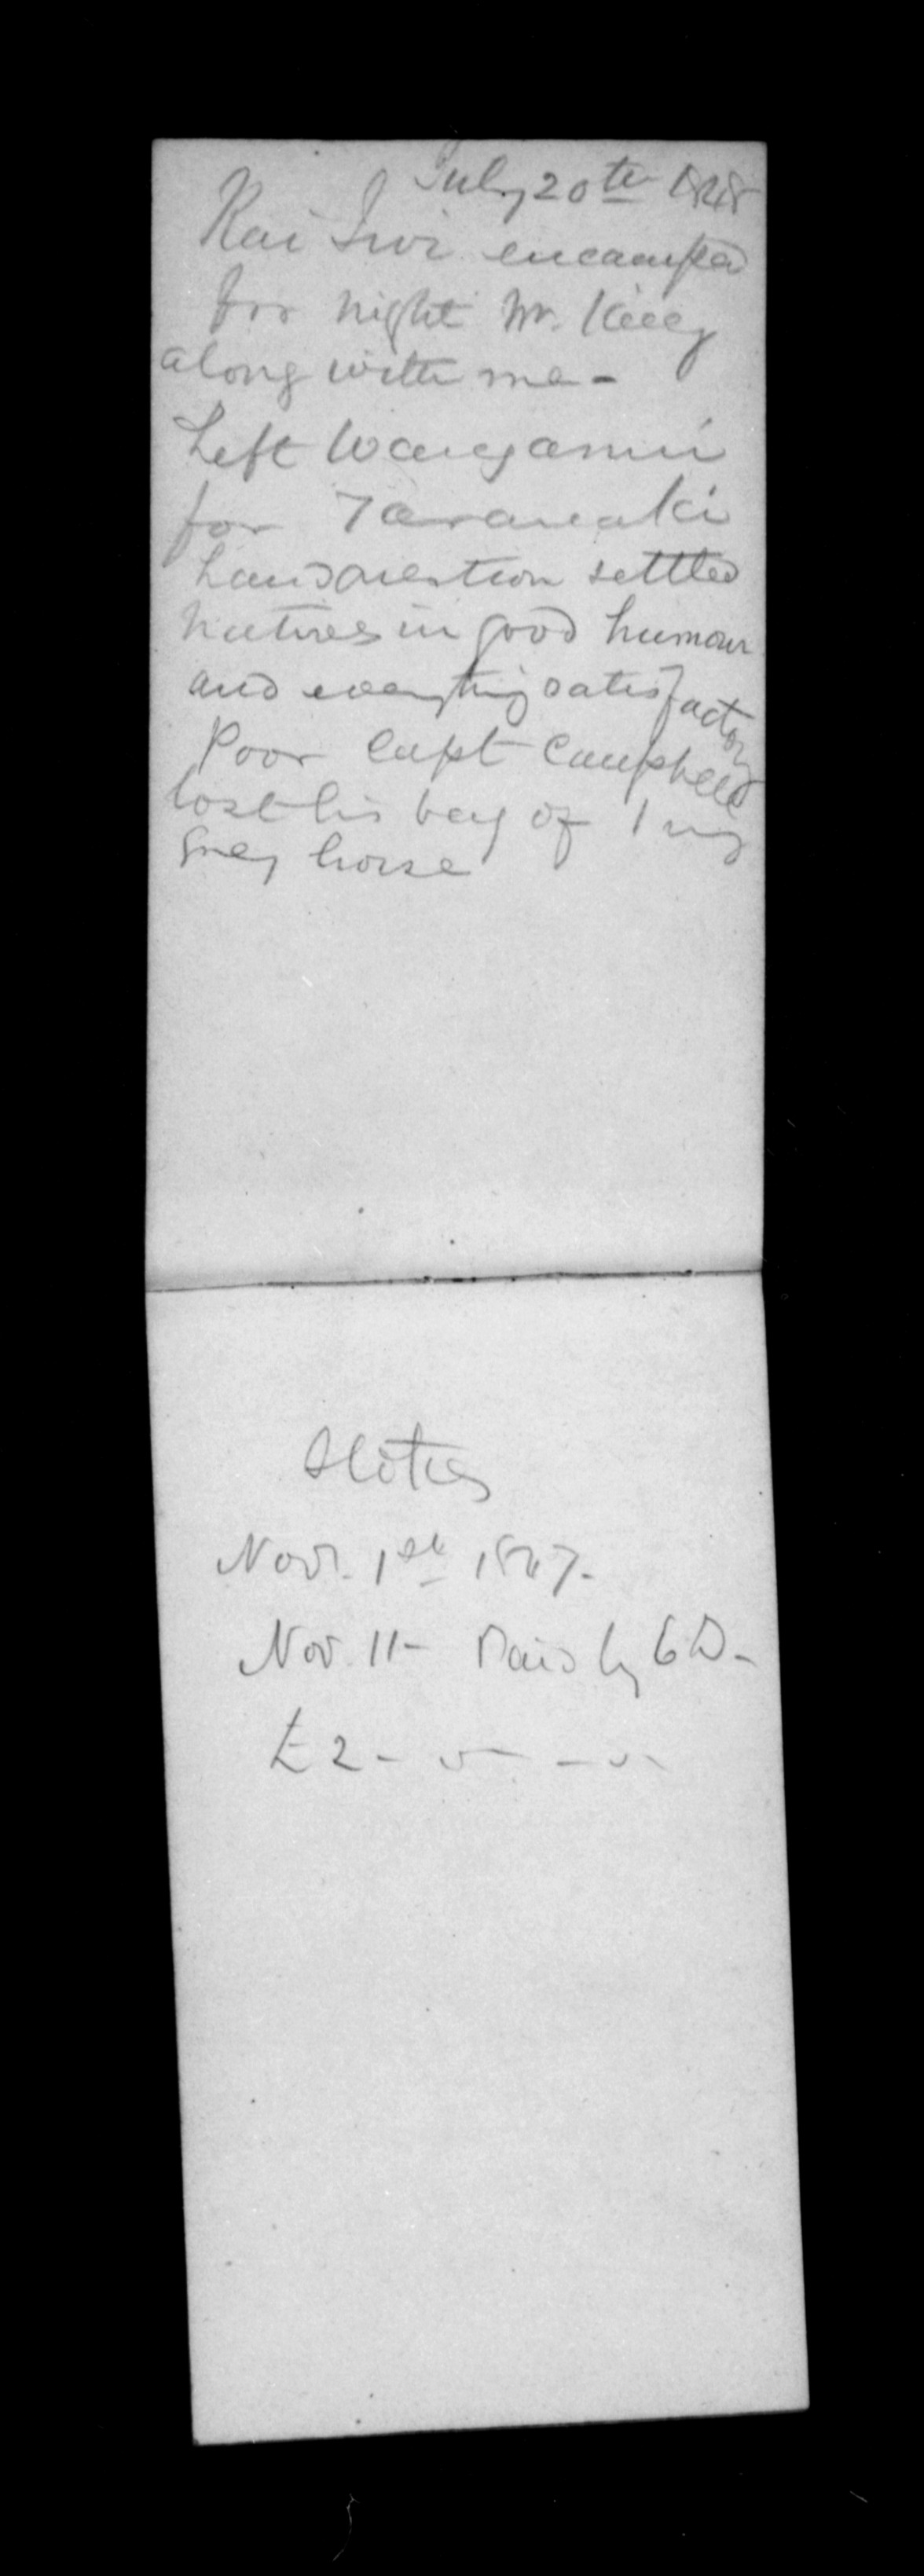 July 20th 1848
Kai Iwi encamped
for night Mr. King
along with me -
Left Wanganui
for Taranaki
Land question settled
natives in good humour
and everything satisfactory
Poor Capt Campbell
lost his bay & I my
Grey horse
Nov. 1st 1847.
Nov. 11 - Paid by
£2 - - -